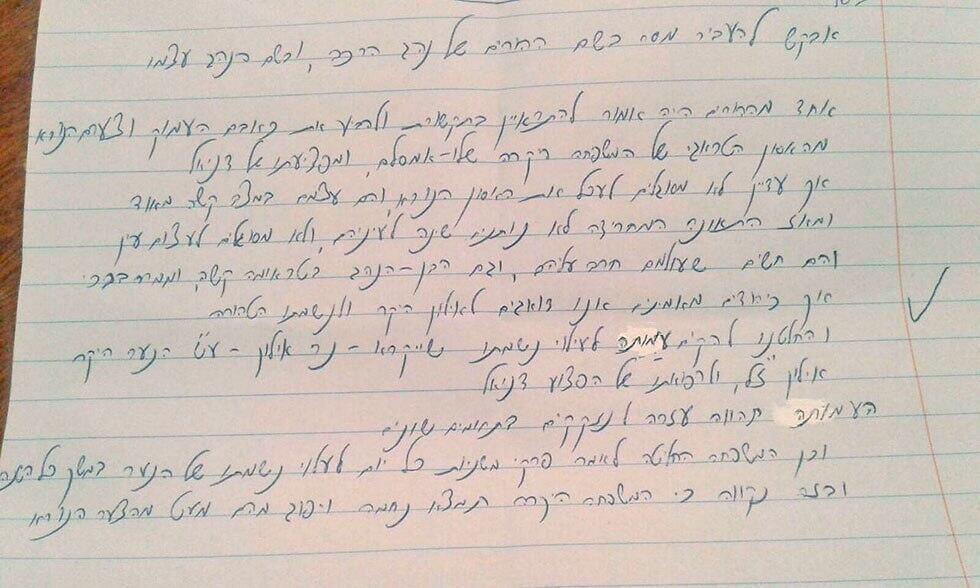 אבקש להעביר מסר בשם ההורים של נהג הרכב, ובשם הנהג עצמו
אחד מההורים היה אמור להתראיין בתקשורת ולהביע את כאבם העמוק וצערם הנורא
מהאסון הטראגי של המשפחה היקרה שלו-אמסלם, ומפציעתו של דניאל
אך עדיין לא מסוגלים לעכל את האסון הנורא, והם עצמם במצב קשה מאוד
ומאז התאונה המחרידה לא נותנים שינה לעיניהם, ולא מסוגלים לעצום עין
והם חשים שעולמם חרב עליהם, וגם הבן-הנהג בטראומה קשה, וממרר בבכי
אך כיהודים מאמינים אנו דואגים לאילון היקר ולנשמתו הטהורה
והחלטנו להקים עמותה לעילוי נשמתו שייקרא - נר אילון - ע"ש הנער היקר
אילון ז"ל, ולרפואתו של הפצוע דניאל
העמותה תהווה עזרה לנזקקים בתחומים שונים
וכן המשפחה החליטה לאמר פרקי משניות כל יום לעלוי נשמתו של הנער במשך כל השנה
ובזה נקווה כי המשפחה היקרה תמצא נחמה ויפוג מהם מעט מהצער הנורא